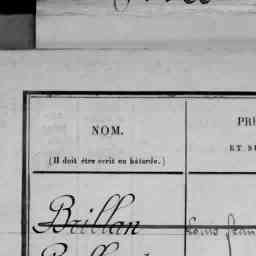 NOM.
PRÉ
(Il doit être écrit en bâtarde.)
ET S
Brillan
Louis Jean